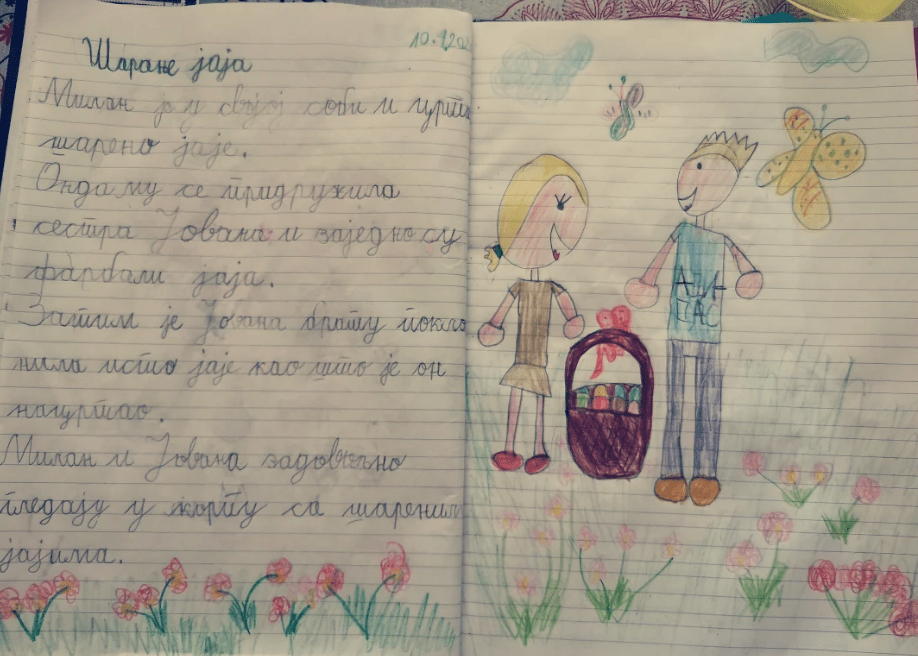 Шарање јаја
10.4.202
Милан је у својој соби и црта
шарено јаје.
Онда му се придружила
сестра Јована и заједно су
фарбали јаја.
Затим је Јована брату покло
нила исто јаје као што је он
нацртао.
Милан и Јована задовољно
гледају у корпу са шареним
јајима.